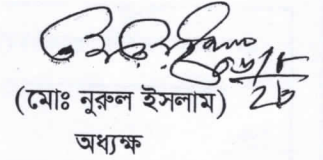 (মোঃ নুরুল ইসলাম)
অধ্যক্ষ